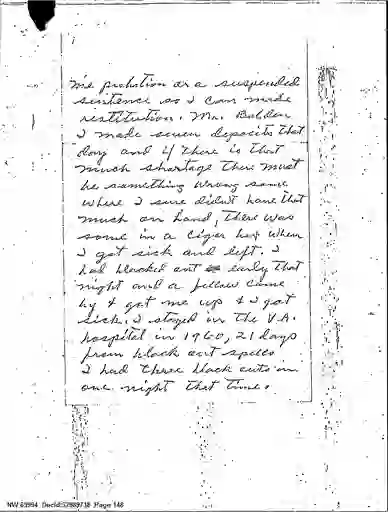 me probation or a suspended
sentence so I can made
restitution. Mr. Bolden
I made seven deposits that
day and if there is that
much shortage there must
be something wrong some
where I sure didn't have that
much on hand, there was
some in a cigar box when
I got sick and left. I
had blacked out early that
night and a fellow came
by & got me up & I got
sick. I stayed in the V.A.
hospital in 1960, 21 days
from black out spells
I had three black outs in
one night that time.
NW 65994 Page 148